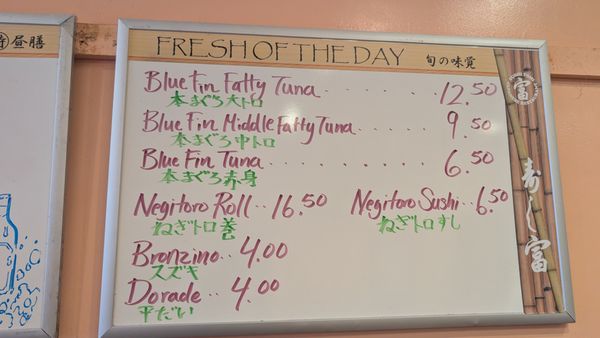 特 昼膳
FRESH OF THE DAY 旬の味覚
Blue Fin Fatty Tuna........12.50
本まぐろ大トロ
Blue Fin Middle Fatty Tuna......9.50
本まぐろ中トロ
Blue Fin Tuna.........6.50
本まぐろ赤身
Negitoro Roll..16.50 Negitoro Sushi..6.50
ねぎトロ巻 ねぎトロすし
Bronzino..4.00
スズキ
Dorade..4.00
平だい
富
寿し富